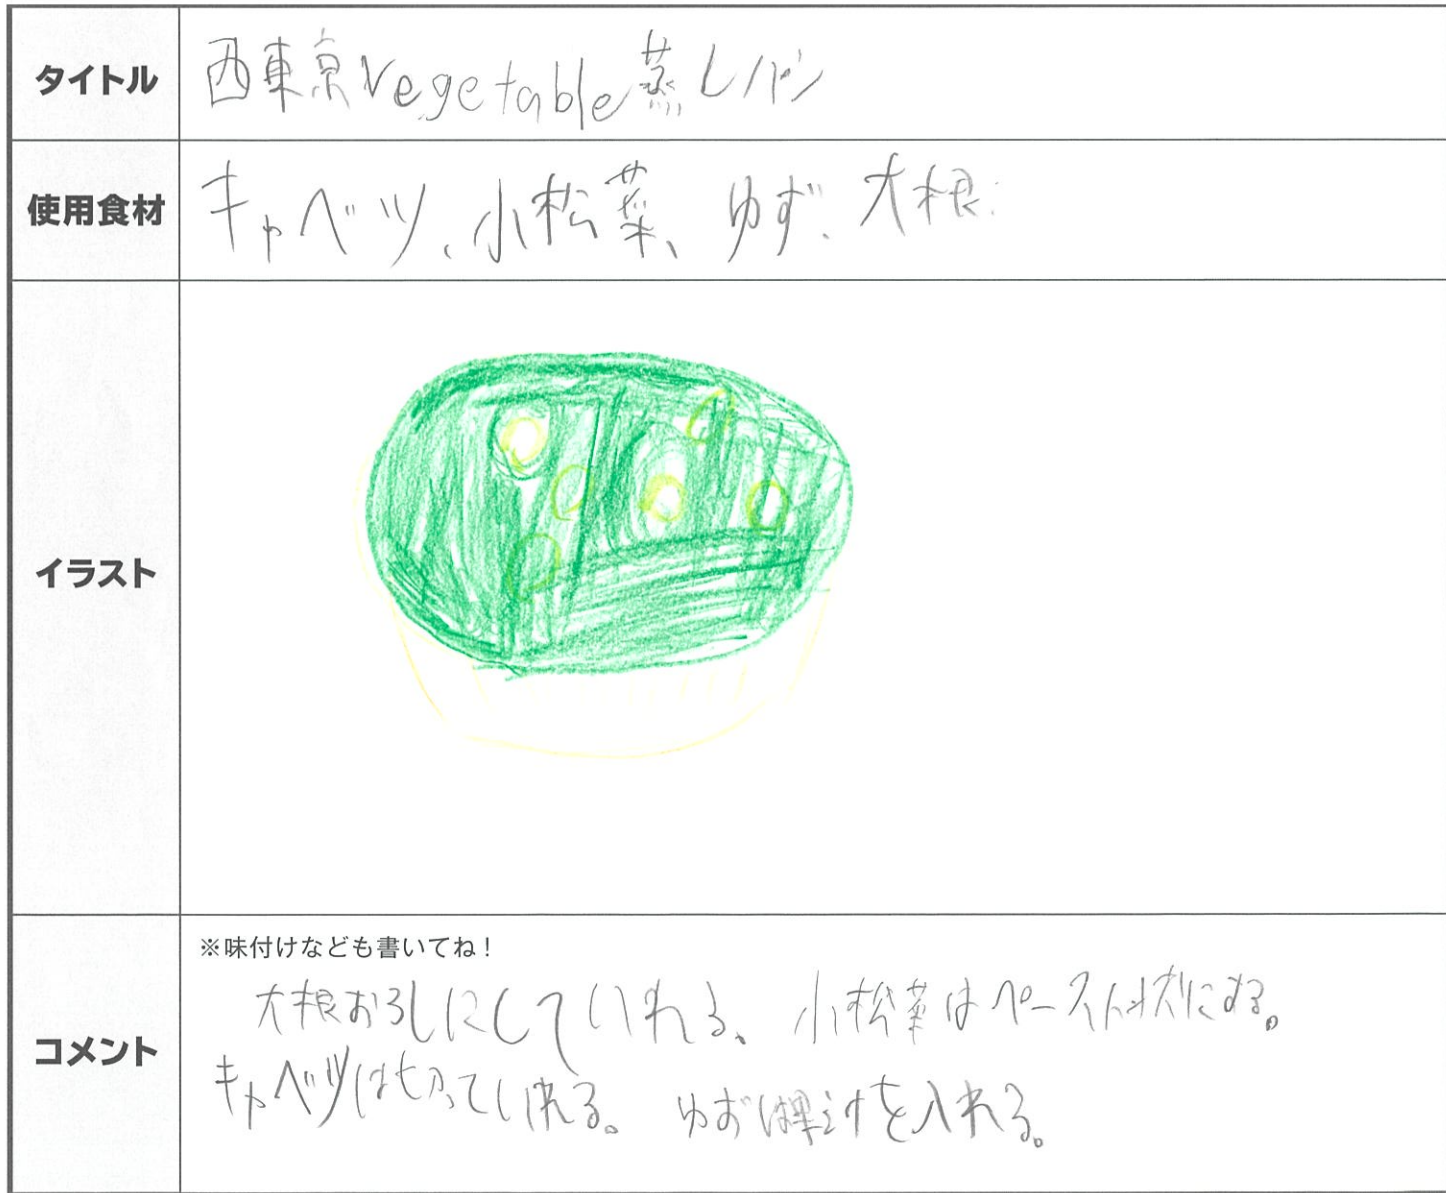 タイトル
西東京Vegetable蒸しパン
使用食材
キャベツ、小松菜、ゆず、大根
イラスト
コメント
※味付けなども書いてね!
大根おろしにしていれる。小松菜はペースト状にする。
キャベツは切っていれる。ゆずは果汁を入れる。